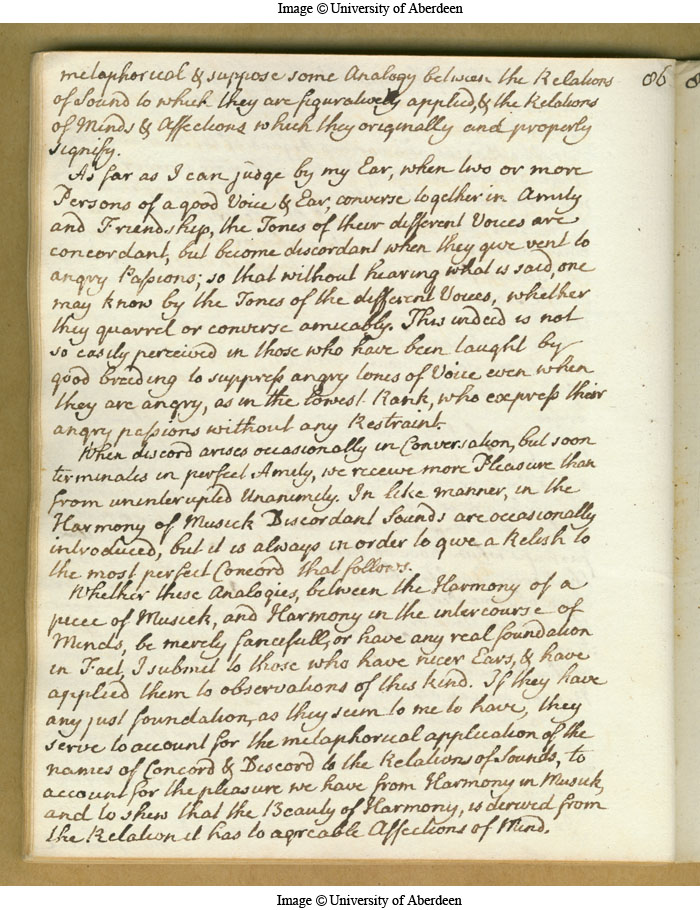 Image © University of Aberdeen
86
metaphorical & suppose some Analogy between the Relations
of Sound to which they are figuratively applied, & the Relations
of Minds & Affections which they originally and properly
signify.
As far as I can judge by my Ear, when two or more
Persons of a good Voice & Ear, converse together in Amity
and Friendship, the Tones of their different Voices are
concordant, but become discordant when they give vent to
angry Passions; so that without hearing what is said, one
may know by the Tones of the different Voices, whether
they quarrel or converse amicably. This indeed is not
so easily perceived in those who have been taught by
good breeding to suppress angry tones of Voice even when
they are angry, as in the lowest Rank, who express their
angry passions without any Restraint.
When discord arises occasionally in Conversation, but soon
terminates in perfect Amity, we receive more Pleasure than
from uninterupted Unanimity. In like manner, in the
Harmony of Musick Discordant Sounds are occasionally
introduced, but it is always in order to give a Relish to
the most perfect Concord that follows.
Whether these Analogies, between the Harmony of a
piece of Musick, and Harmony in the intercourse of
Minds, be merely fancefull, or have any real foundation
in Fact, I submit to those who have nicer Ears, & have
applied them to observations of this kind. If they have
any just foundation, as they seem to me to have, they
serve to account for the metaphorical application of the
names of Concord & Discord to the Relations of Sounds, to
account for the pleasure we have from Harmony in Musick,
and to shew that the Beauty of Harmony, is derived from
the Relation it has to agreable Affections of Mind.
Image © University of Aberdeen